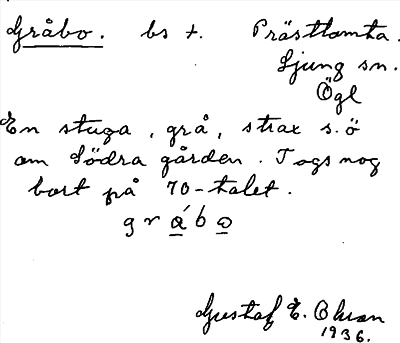 Gråbo. bs +. Prästtomta.
Ljung sn.
Ögl
En stuga, grå, strax s.ö
om Södra gården. Togs nog
bort på 70-talet.
g r á b o
Gustaf E. Ohran
1936.